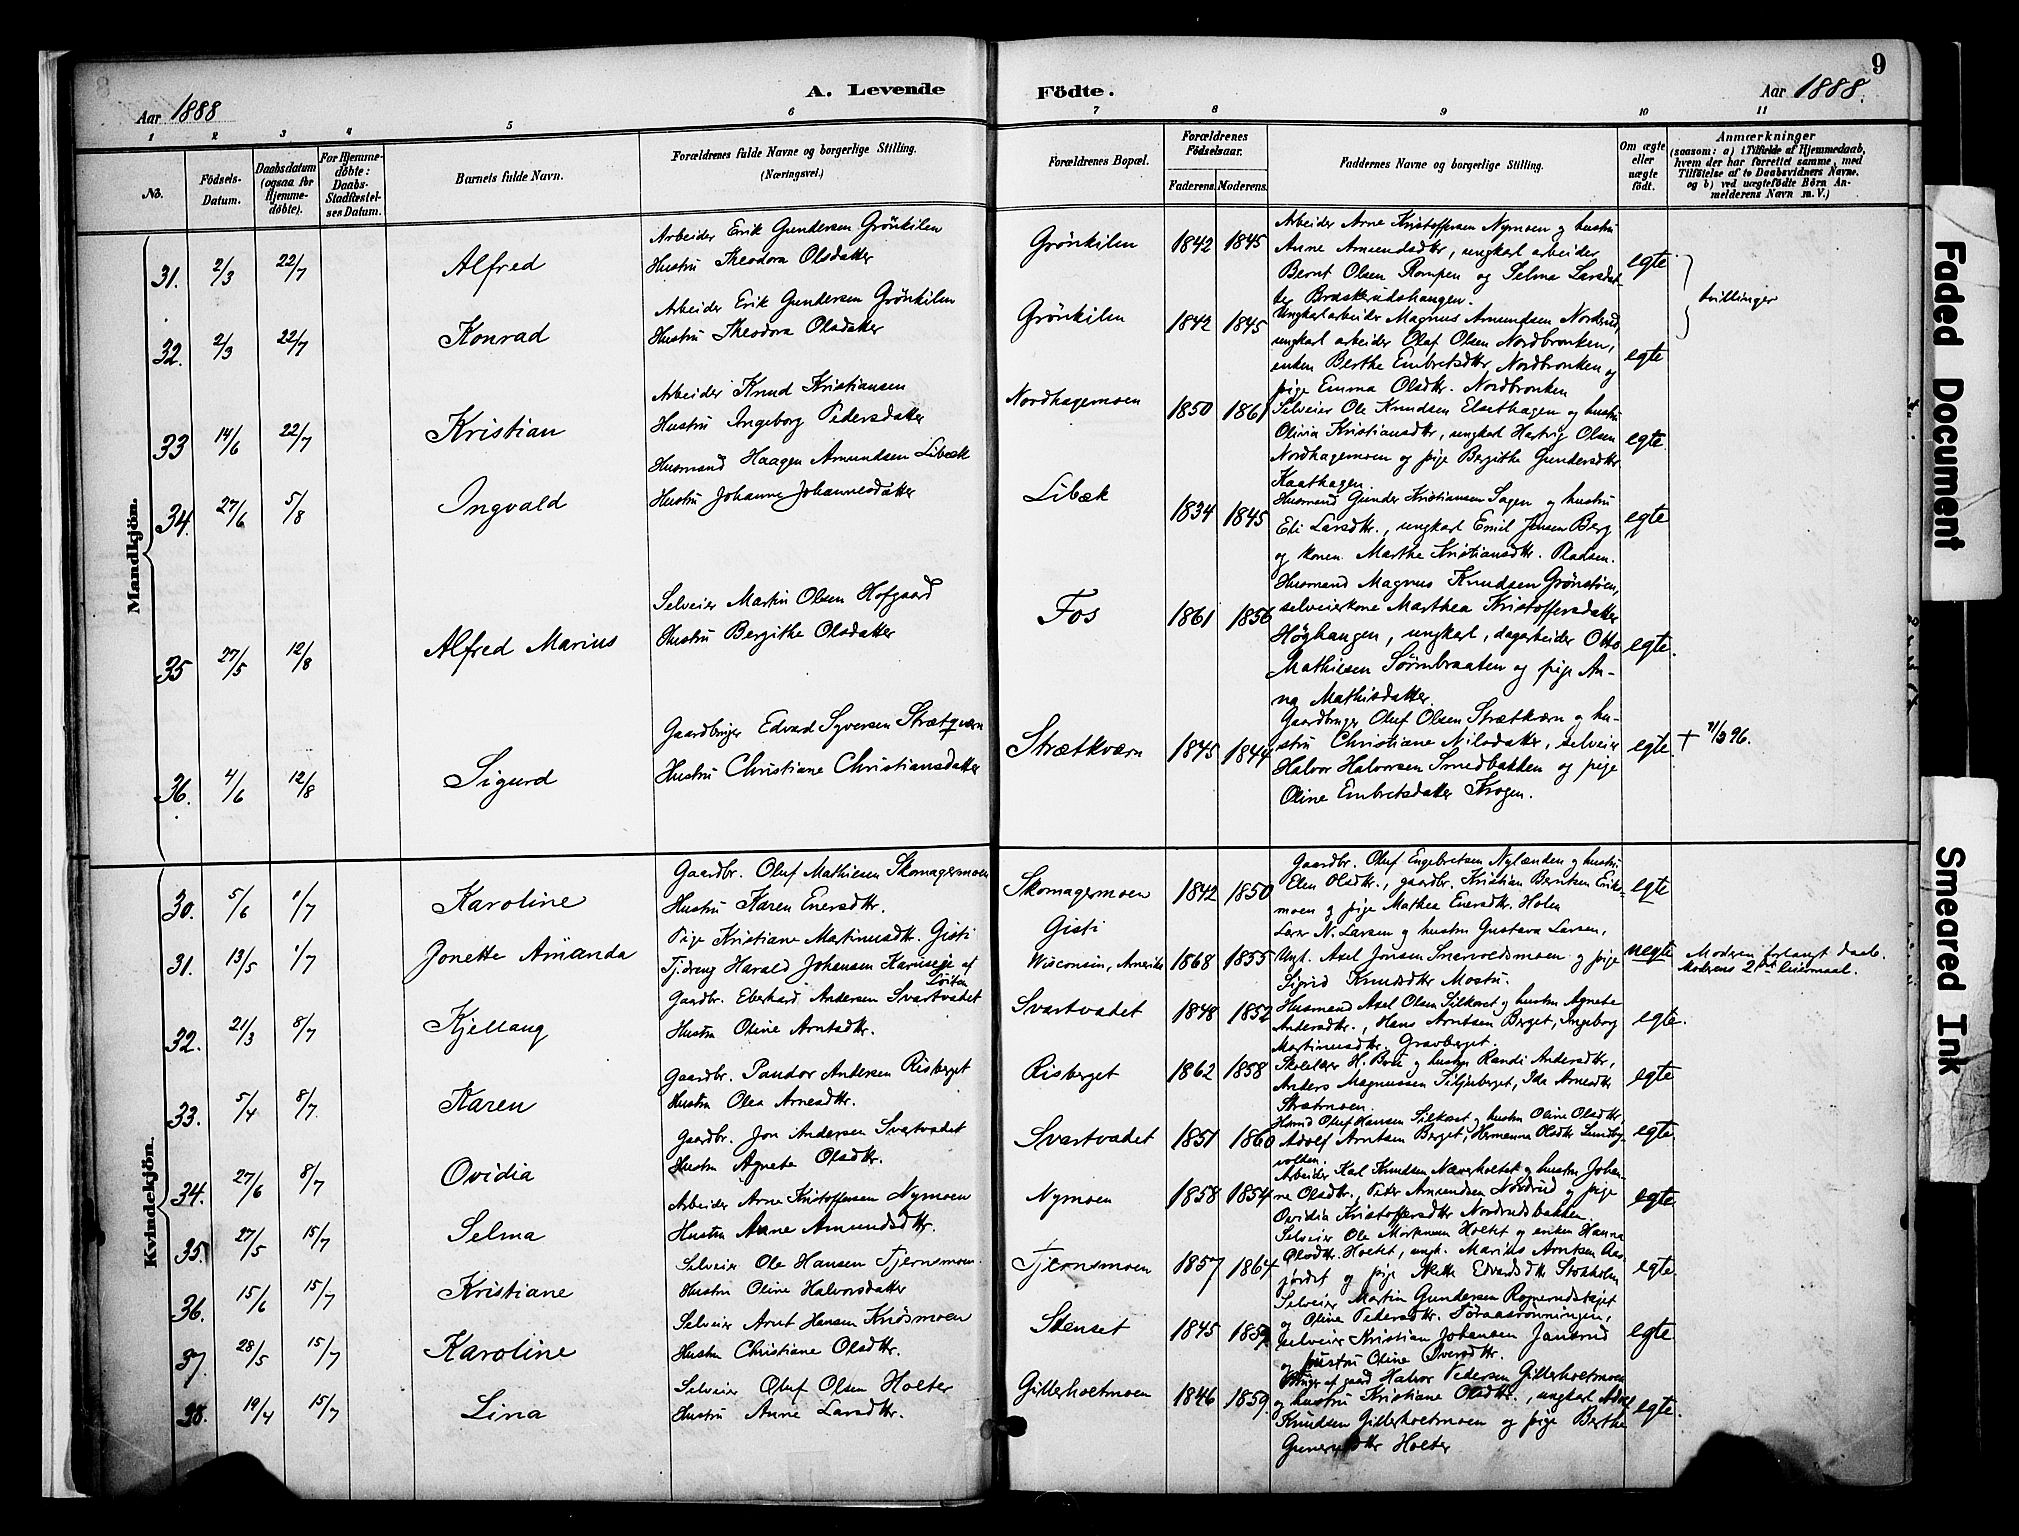 8
Aar 1888
A. Levende
Födte.
Aar 1888.
9
1 2 3 4 5 6 7 8 9 10 11
No.
Födsels-Datum.
Daabsdatum (ogsaa for Hjemmedöbte).
For Hjemmedöbte: Daabs-Stadfæstelses Datum.
Barnets fulde Navn.
Forældrenes fulde Navne og borgerlige Stilling. (Næringsvei.)
Forældrenes Bopæl.
Forældrenes Födselsaar.
Faderens. Moderens.
Faddernes Navne og borgerlige Stilling.
Om ægte eller uægte födt.
Anmærkninger
(saasom: a) i Tilfælde af Hjemmedaab, hvem der har forrettet samme, med Tilföielse af to Daabsvidners Navne. og b) ved uægtefödte Börn Anmelderens Navn m. V.)
Mandkjön.
31. 2/3 22/7 Alfred
Arbeider Erik Gundersen Grönkilen
Hustru Theodora Olsdatter
Grönkilen 1842 1845
Arbeider Arne Kristoffersen Nymoen og hustru
Anne Amundsdtr, ungkarl arbeider
Bernt Olsen Rompen og Selma Larsdat-
ter Braskerudshaugen.
egte
tvillinger
32. 2/3 22/7 Konrad
Arbeider Erik Gundersen Grönkilen
Hustru Theodora Olsdatter
Grönkilen 1842 1845
Ungkarl arbeider Magnus Amundsen Nordrud,
ungkarl arbeider Olaf Olsen Nordbronken,
enken Berthe Embretsdtr, Nordbronken og
pige Emma Olsdtr. Nordbronken
egte
33 14/6 22/7 Kristian
Arbeider Knud Kristiansen
Hustru Ingeborg Pedersdatter
Nordhagemoen 1850 1861
Selveier Ole Knudsen Elsethagen og hustru
Olivia Kristiansdtr, ungkarl Hartvig Olsen
Nordhagemoen og pige Bergithe Gundersdtr
Kaathagen.
egte
34. 27/6 5/8 Ingvald
Husmand Haagen Amundsen Libæk
Hustru Johanne Johannesdatter
Libæk 1834 1845
Husmand Gunder Kristiansen Sagen og hustru
Eli Larsdtr., ungkarl Emil Jensen Berg
og konen Marthe Kristiansdtr. Pladsen.
egte
35 27/5 12/8 Alfred Marius
Selveier Martin Olsen Hofgaard
Hustru Bergithe Olsdatter
Fos 1861 1856
Husmand Magnus Knudsen Grönstöen,
selveierkone Marthea Kristoffersdatter
Höghaugen, ungkarl, dagarbeider Otto
Mathiesen Sörmbraaten og pige An-
na Mathisdatter.
egte.
36. 4/6 12/8 Sigurd
Gaardbruger Edvard Syversen Strætqværn
Hustru Christiane Christiansdatter
Strætkværn 1845 1844
Gaardbruger Oluf Olsen Strætkværn og hu-
stru Christiane Nilsdatter, selveier
Halvor Halvorsen Smedbakken og pige
Oline Embretsdatter Krogen.
egte.
Kvindekjön.
30. 5/6 1/7 Karoline
Gaardbr. Oluf Mathiesen Skomagermoen
Hustru Karen Enersdtr.
Skomagermoen 1842 1850
Gaardbr. Oluf Engebretsen Nylænden og hustru
Elen Olsdtr., gaardbr. Kristian Berntsen Erik-
moen og pige Mathea Enersdtr. Holen
egte
31. 13/5 1/7 Jonette Amanda
Pige Kristiane Martinusdtr. Gisti
Tj.dreng Harald Johansen Karuseje af
Löiten
Gisti
Wisconsin, Amerika 1868 1855
Lærer N. Larsen og hustru Gustava Larsen,
Ungk. Axel Jonsen Snervoldsmoen og pige
Sigrid Knudsdtr Mostu.
uegte
Moderen forlangt daab.
Moderens 2det leiermaal.
32. 21/3 8/7 Kjellaug
Gaardbr. Eberhard Andersen Svartvadet
Hustru Oline Arntsdtr.
Svartvadet 1848 1852
Husmand Axel Olsen Silkoset og hustru Agnete
Andersdtr., Hans Arntsen Berget, Ingeborg
Martinusdtr. Gravberget.
egte.
33. 5/4 8/7. Karen
Gaardbr. Pandor Andersen Risberget
Hustru Olea Arnesdtr.
Risberget 1862 1858
Skolelærer H. Berti og hustru Randi Andersdtr,
Anders Magnussen Siljuberget, Ida Arnesdtr
Strætmoen.
egte
34. 27/6 8/7 Ovidia
Gaardbr. Jon Andersen Svartvadet
Hustru Agnete Olsdtr.
Svartvadet 1851 1860
Husmd Oluf Hansen Silkoset og hustru Oline Olsdtr
Adolf Arntsen Berget, Hermanna Olsdtr Lundby-
volden.
egte
35. 27/5 15/7 Selma
Arbeider Arne Kristoffersen Nymoen
Hustru Anne Amundsdtr.
Nymoen 1858 1854
Arbeider Karl Knudsen Næverholtet og hustru Johan-
ne Olsdtr., Peder Amundsen Nordrud og pige
Ovidia Kristoffersdtr Nordrudsbakken.
egte
36. 15/6 15/7 Kristiane
Selveier Ole Hansen Tjernsmoen.
Hustru Oline Halvorsdatter
Tjernsmoen 1857 1864
Selveier Ole Mortensen Holtet og enken Hanna
Olsdtr. Holtet, ungk. Marius Arntsen Aas-
jordet og pige Mette Edvardsdtr Stokholm
egte
37. 28/5 15/7 Karoline
Selveier Arnt Hansen Knösmoen
Hustru Christiane Olsdtr.
Stenset 1845 1859
Selveier Martin Gundersen Rognerudskjet
og Oline Pedersdtr. Föraasrönningen,
selveier Kristian Johansen Jansrud
og hustru Oline Iversdtr.
egte
38. 19/4 15/7 Lina
Selveier Oluf Olsen Holter
Hustru Anne Larsdtr.
Gillerholtmoen 1846 1859.
Bruger af gaard Halvor Pedersen Gillerholtmoen
og hustru Kristiane Olsdtr., ungkarl Adolf
Knudsen Gillerholtmoen og pige Berthe
Holter
egte.
Faded Document
Smeared Ink